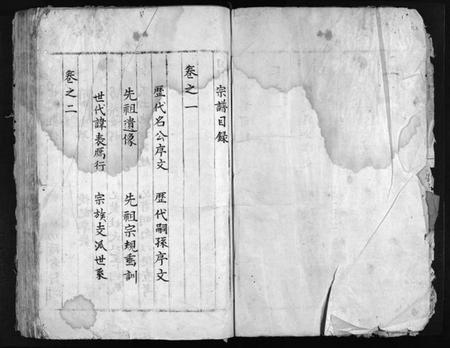 宗譜目録
卷之一
歷代名公序文 歷代嗣孫序文
先祖遺像 先祖宗規垂訓
世代諱表雁行 宗族支派世系
卷之二